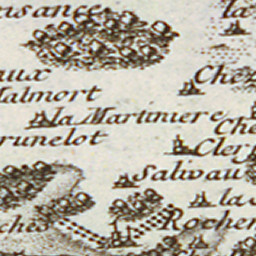 aisance
la
aux
Che
Malmort
la Martiniere
Che
runelot
Cler
Salivau
la S
Rochen
ches